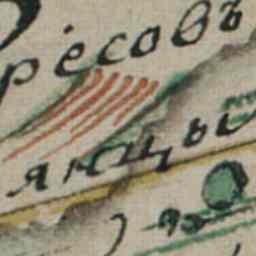 ресовъ
янцы